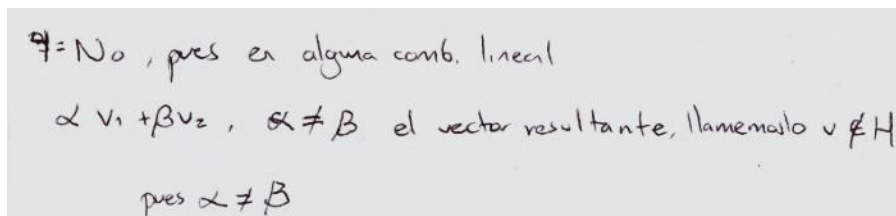 7= No, pues en alguna comb. lineal
α v₁ + βv₂, α ≠ β el vector resultante, llamemoslo v ∉ H
pues α ≠ β